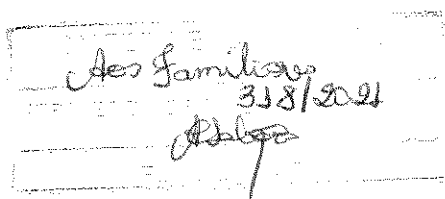 Aos Familiares
31/8/2021